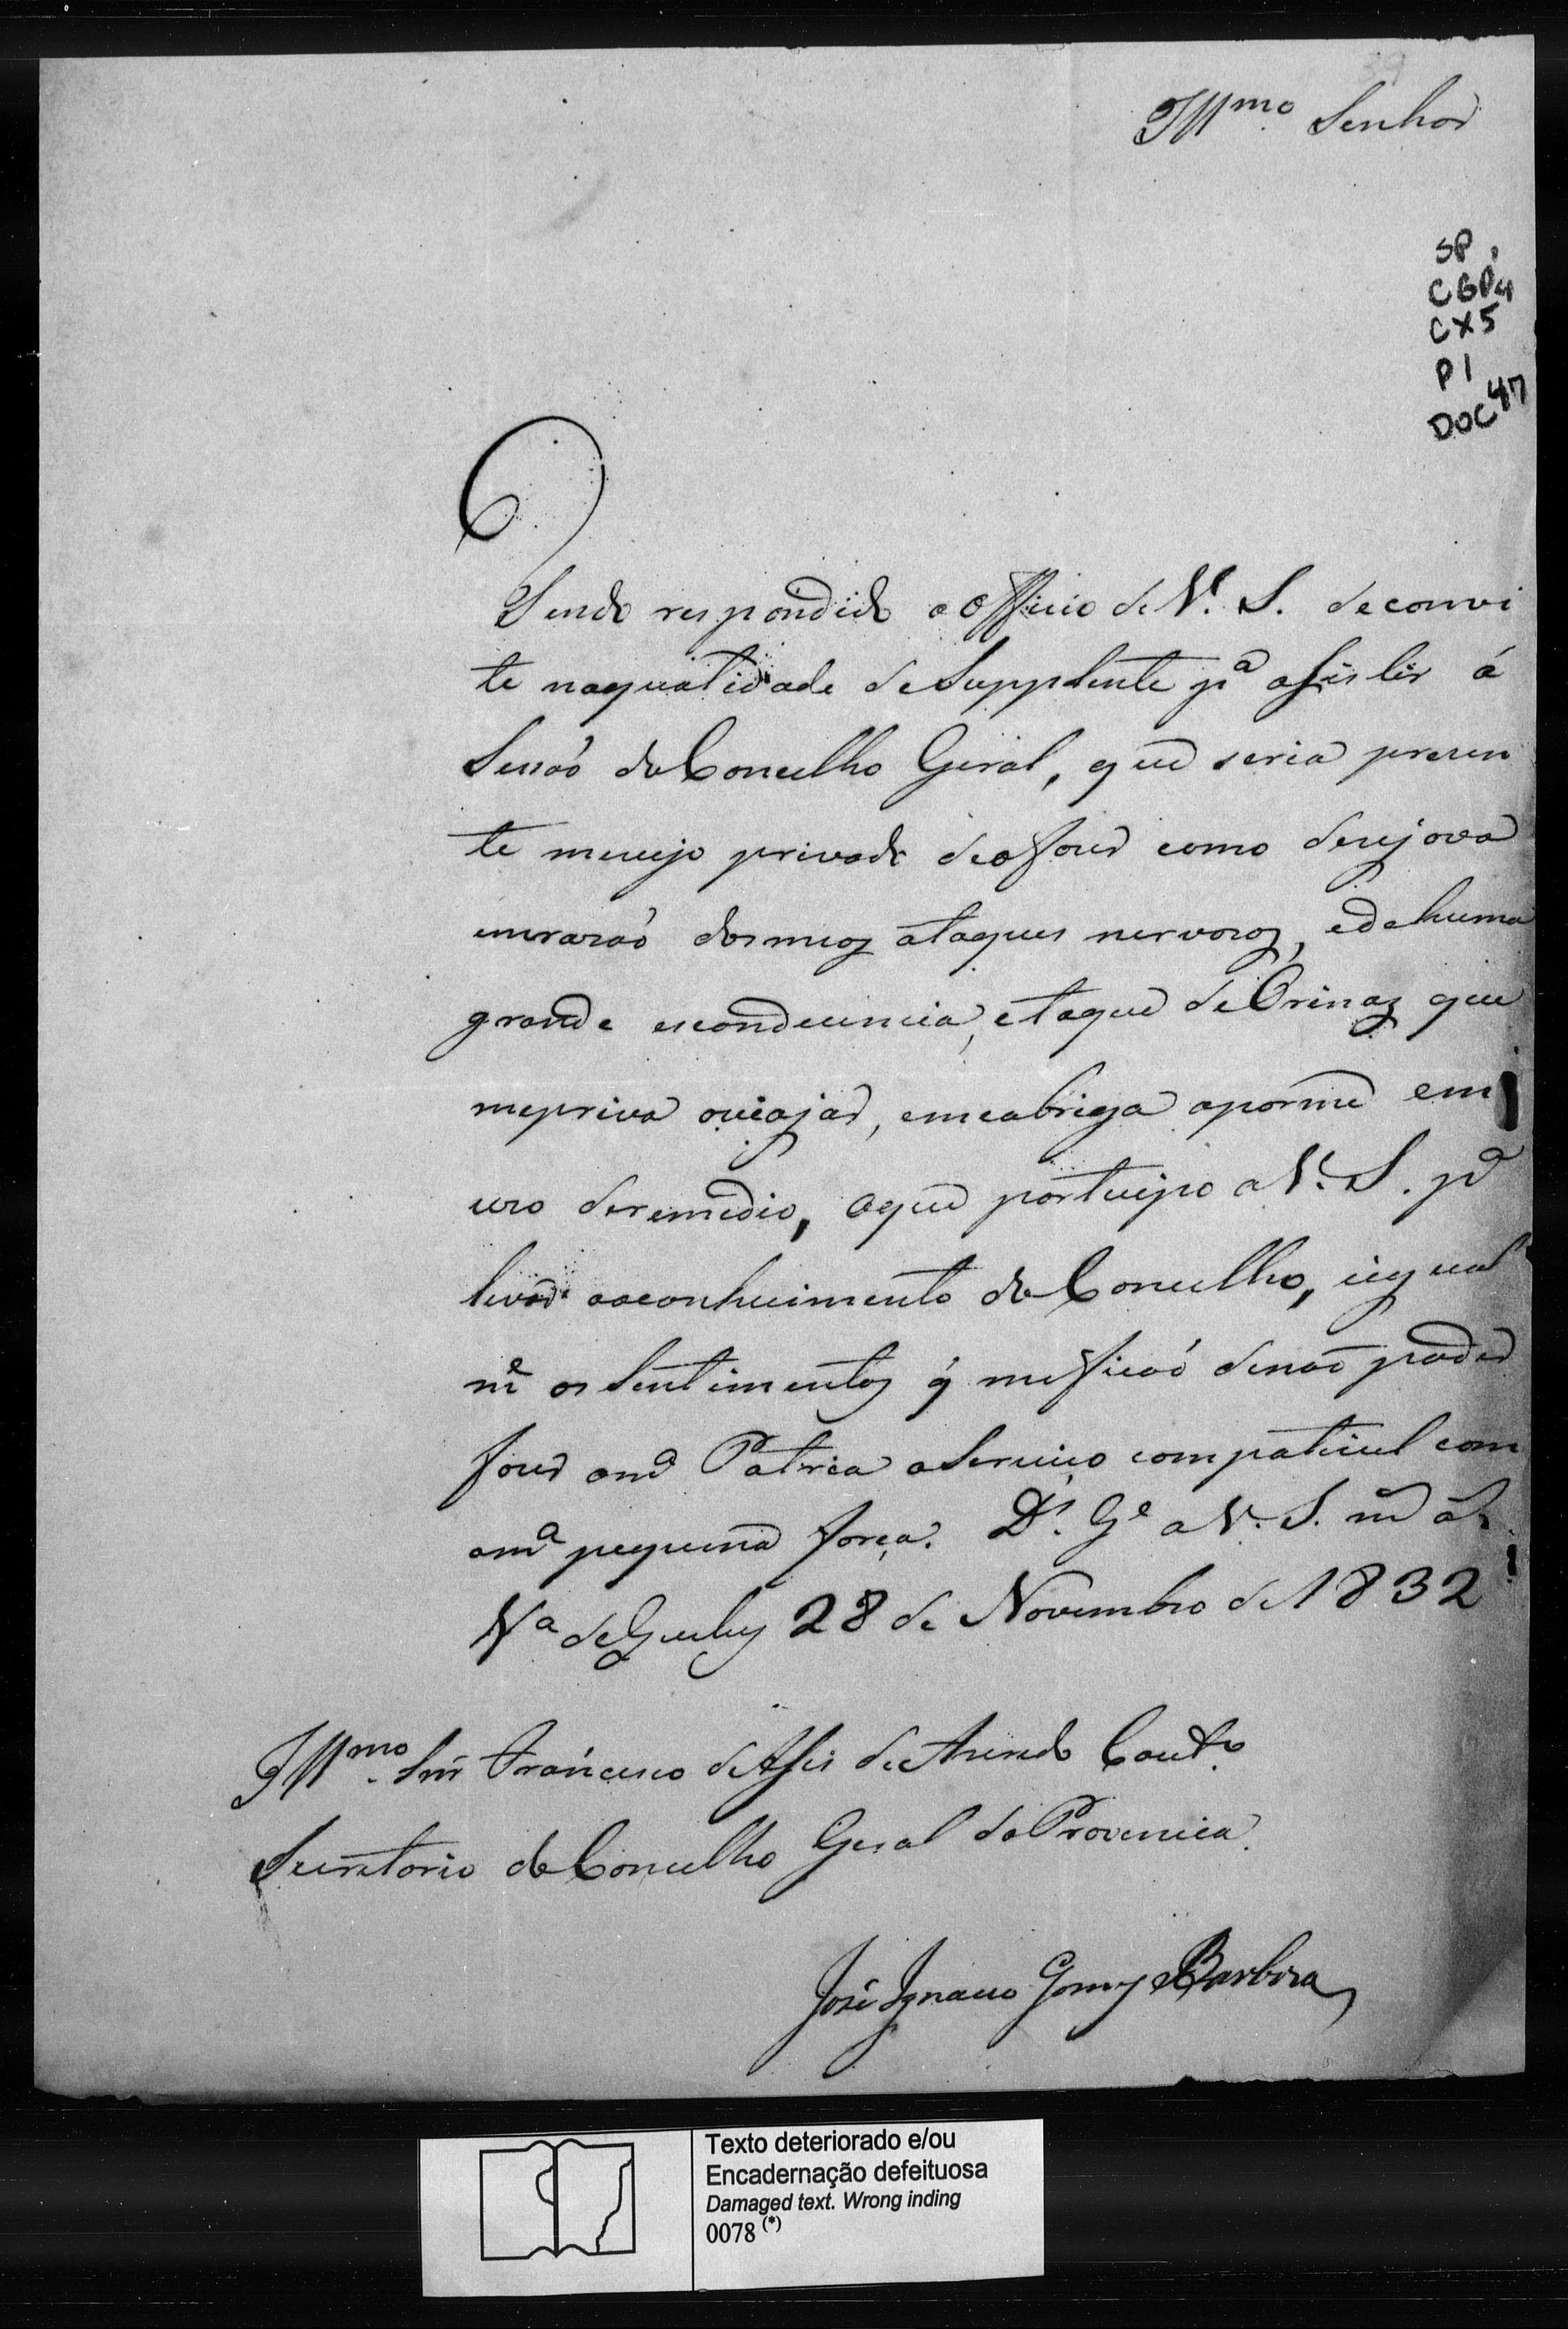 Illmo. Senhor
SP.
CGP4
CX5
P1
DOC 47
Sendo respondido o Officio de V. S. de convi
te naqualidade de Supplente pa. assistir á
Sessaõ do Concelho Geral, que seria presen
te mevejo privado deofaser como desejava
emrazaõ dosmeos ataques nervosos, edehuma
grande escandecencia, ataque de Orinas que
mepriva aviajar, emeobriga apôrme em
uso deremedio, oque participo a V. S. pa.
levar aoconhecimento do Concelho, eigual
me os Sentimentos q̃ meficaõ denaõ poder
faser ama Patria oServiço compativel com
ama pequena força. Ds. Ge a V. S. ms as
Va de 28 de Novembro de 1832
Illmo. Snr Francisco deAssis de Azeredo Coutº.
Secretario do Concelho Geral da Provincia.
José Ignacio Gomes Barbosa
Texto deteriorado e/ou
Encadernação defeituosa
Damaged text. Wrong inding
0078 (*)